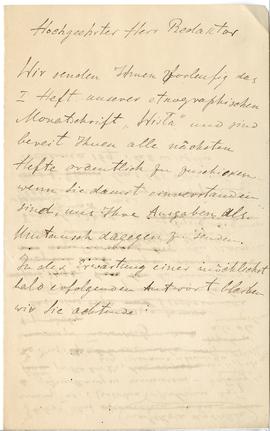 Hochgeehrter Herr Redaktor
Wir senden Ihnen vorleufig das
I Heft unserer etnographischen
Monatschrift „Wisła" und sind
bereit Ihnen alle nächsten
Hefte ordentlich zu zuschicken
wenn Sie damit einverstanden
sind, uns Ihre Ausgaben als
Umtausch dagegen zu senden.
In der Erwartung einer möchlichst
bald erfolgenden Antwort bleiben
wir Sie achtende: